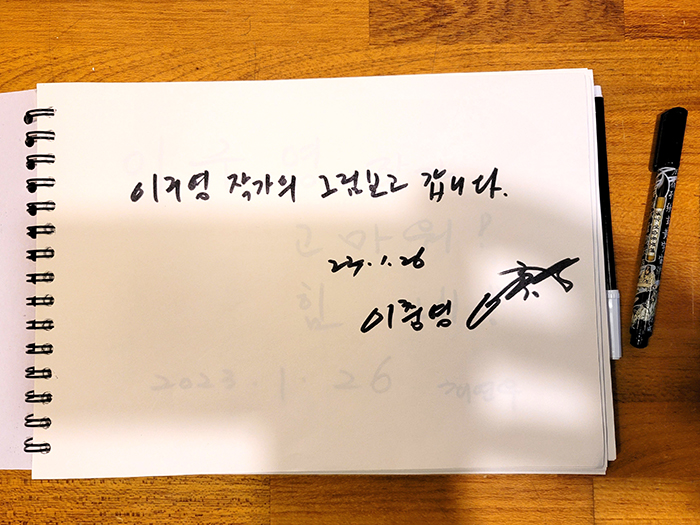 이귀영 작가의 그림보고 갑니다.
23.1.26
이충영
고마워!
힘
2023.1.26